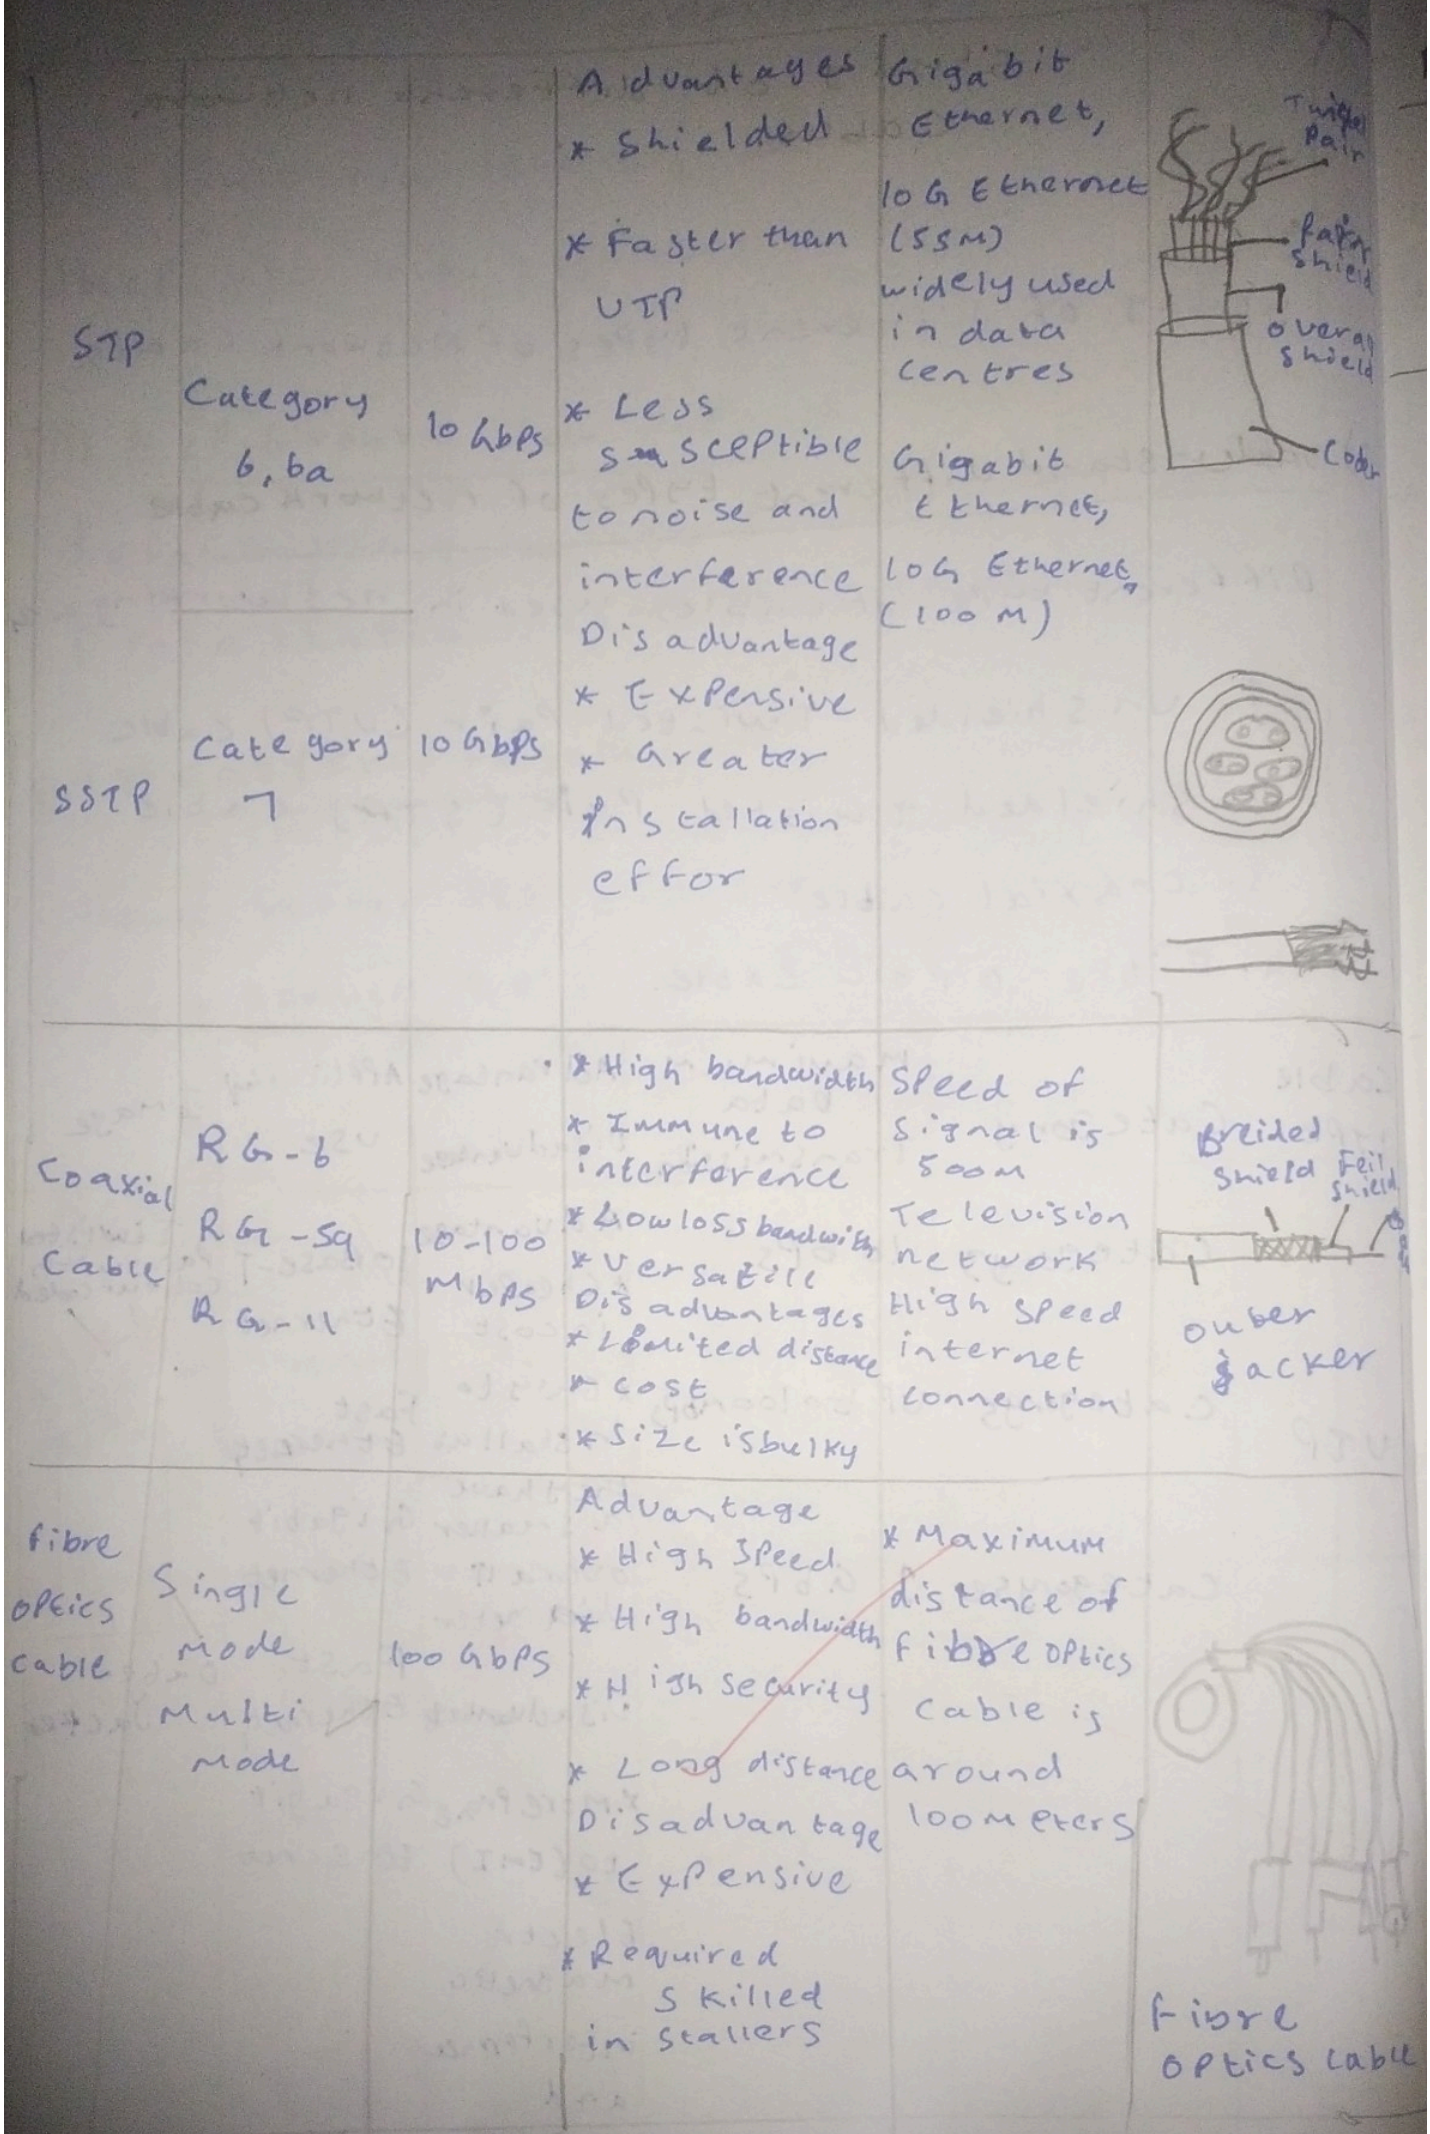 STP
Category
6, 6a
10 Gbps
Advantages
* Shielded
* Faster than
UTP
* Less
susceptible
to noise and
interference
Disadvantage
* Expensive
* Greater
Installation
effor
Gigabit
Ethernet,
10G Ethernet
(55M)
widely used
in data
centres
Gigabit
Ethernet,
10G Ethernet,
(100M)
Pair
Shield
overall
shield
SSTP
Category
7
10 Gbps
Coaxial
Cable
RG-6
RG-59
RG-11
10-100
Mbps
* High bandwidth
* Immune to
interference
* Low loss bandwith
* Versatile
Disadvantages
* Limited distance
* cost
* Size is bulky
Speed of
signal is
500m
Television
network
High speed
internet
connection
Breided
shield
Feil
shield
outer
jacker
fibre
optics
cable
Single
mode
Multi
mode
100 Gbps
Advantage
* High Speed
* High bandwidth
* High security
* Long distance
Disadvantage
* Expensive
* Required
skilled
installers
* Maximum
distance of
fibre optics
cable is
around
100 meters
Fibre
optics cable